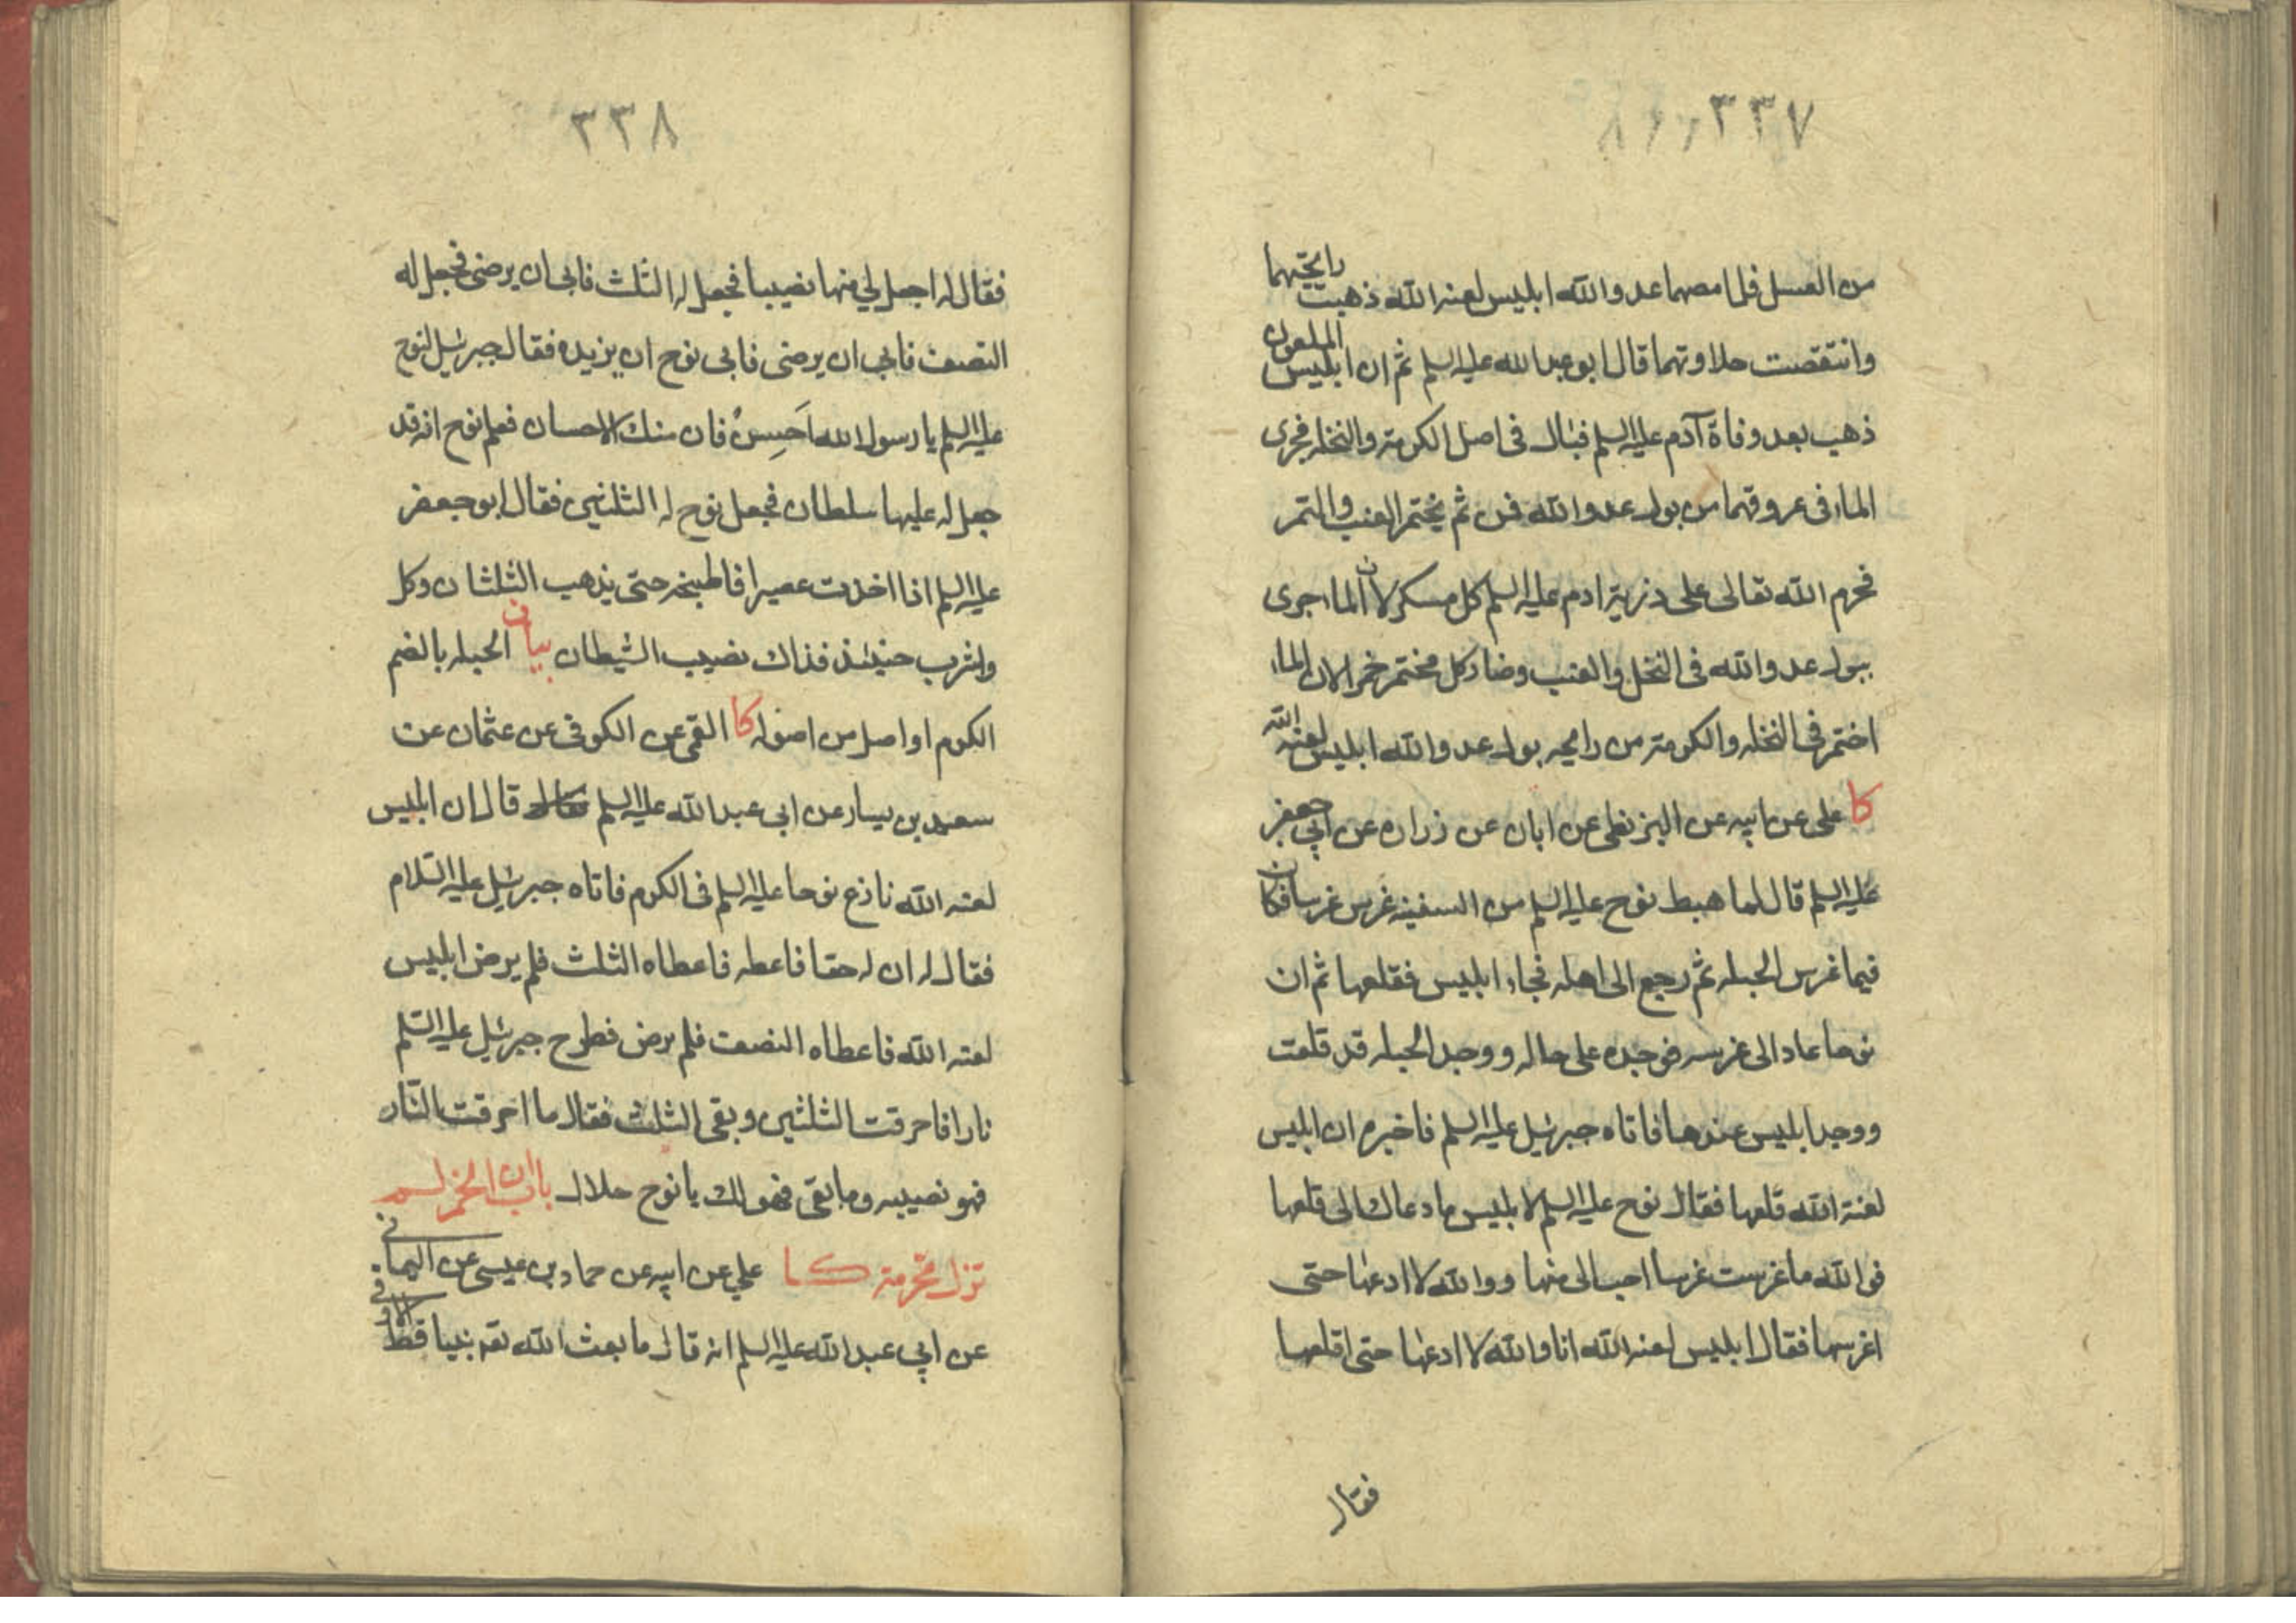 ٣٣٧
من العسل فلما مصهما عدو الله ابليس لعنه الله ذهبت رايحتهما
وانتقصت حلاوتهما قال ابو عبد الله عليه السلم ثم ان ابليس الملعون
ذهب بعد وفاة آدم عليه السلم فبال فى اصل الكرمة والنخله فجرى
الماء فى عروقهما من بول عدو الله فمن ثم يختمر العنب والتمر
فحرم الله تعالى على ذرية ادم عليه السلم كل مسكر لان الماء جرى
ببول عدو الله فى النخل والعنب وصار كل مختمر خمرا لان الماء
اختمر فى النخله والكرمة من رايحه بول عدو الله ابليس لعنه الله
كا على عن ابيه عن البزنطى عن ابان عن زراره عن ابي جعفر
عليه السلم قال لما هبط نوح عليه السلم من السفينه غرس غرسا فكان
فيما غرس الحبله ثم رجع الى اهله فجاء ابليس فقلعها ثم ان
نوحا عاد الى غرسه فوجده على حاله ووجد الحبله قد قلعت
ووجد ابليس عندها فاتاه جبرئيل عليه السلم فاخبره ان ابليس
لعنة الله قلعها فقال نوح عليه السلم لابليس ما دعاك الى قلعها
فو الله ما غرست غرسا احب الى منها ووالله لا ادعها حتى
اغرسها فقال ابليس لعنه الله انا والله لا ادعها حتى اقلعها
فقال
٣٣٨
فقال له اجعل لي منها نصيبا فجعل له الثلث فابى ان يرضى فجعل له
النصف فابى ان يرضى فابى نوح ان يزيده فقال جبرئيل لنوح
عليه السلم يا رسول الله اَحسِنْ فان منك الاحسان فعلم نوح انه قد
جعل له عليها سلطان فجعل نوح له الثلثين فقال ابو جعفر
عليه السلم اذا اخذت عصيرا فاطبخه حتى يذهب الثلثان وكل
واشرب حينئذ فذاك نصيب الشيطان بيان الحبله بالضم
الكرم او اصل من اصوله كا القمى عن الكوفى عن عثمان عن
سعيد بن يسار عن ابى عبد الله عليه السلم قال ان ابليس
لعنه الله نازع نوحا عليه السلم فى الكرم فاتاه جبرئيل عليه السّلام
فقال له ان له حقا فاعطه فاعطاه الثلث فلم يرض ابليس
لعنه الله فاعطاه النصف فلم يرض فطرح جبرئيل عليه السّلم
نارا فاحرقت الثلثين وبقى الثلث فقال ما احرقت النّار
فهو نصيبه وما بقى فهو لك يا نوح حلال باب ان الخمر لم
تزل محرمة كا علي عن ابيه عن حماد بن عيسى عن اليمانى
عن ابي عبد الله عليه السلم انه قال ما بعث الله تعه نبيا قط الا وفى